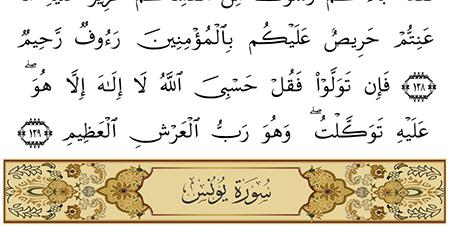 عَنِتُّمْ حَرِيصٌ عَلَيْكُم بِالْمُؤْمِنِينَ رَءُوفٌ رَّحِيمٌ
﴿١٢٨﴾ فَإِن تَوَلَّوْا۟ فَقُلْ حَسْبِىَ اللَّهُ لَا إِلَـٰهَ إِلَّا هُوَ ۖ
عَلَيْهِ تَوَكَّلْتُ ۖ وَهُوَ رَبُّ الْعَرْشِ الْعَظِيمِ ﴿١٢٩﴾
سُورَةُ يُونُسَ